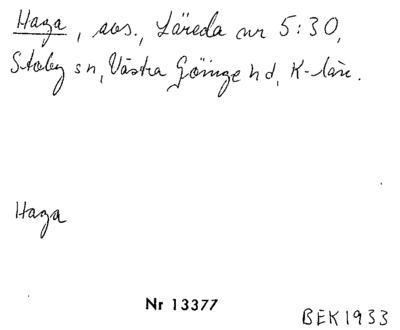 Haga, avs., Läreda nr 5:30,
Stoby sn, Västra Göinge hd, K-län.
Haga
Nr 13377
BEK1933